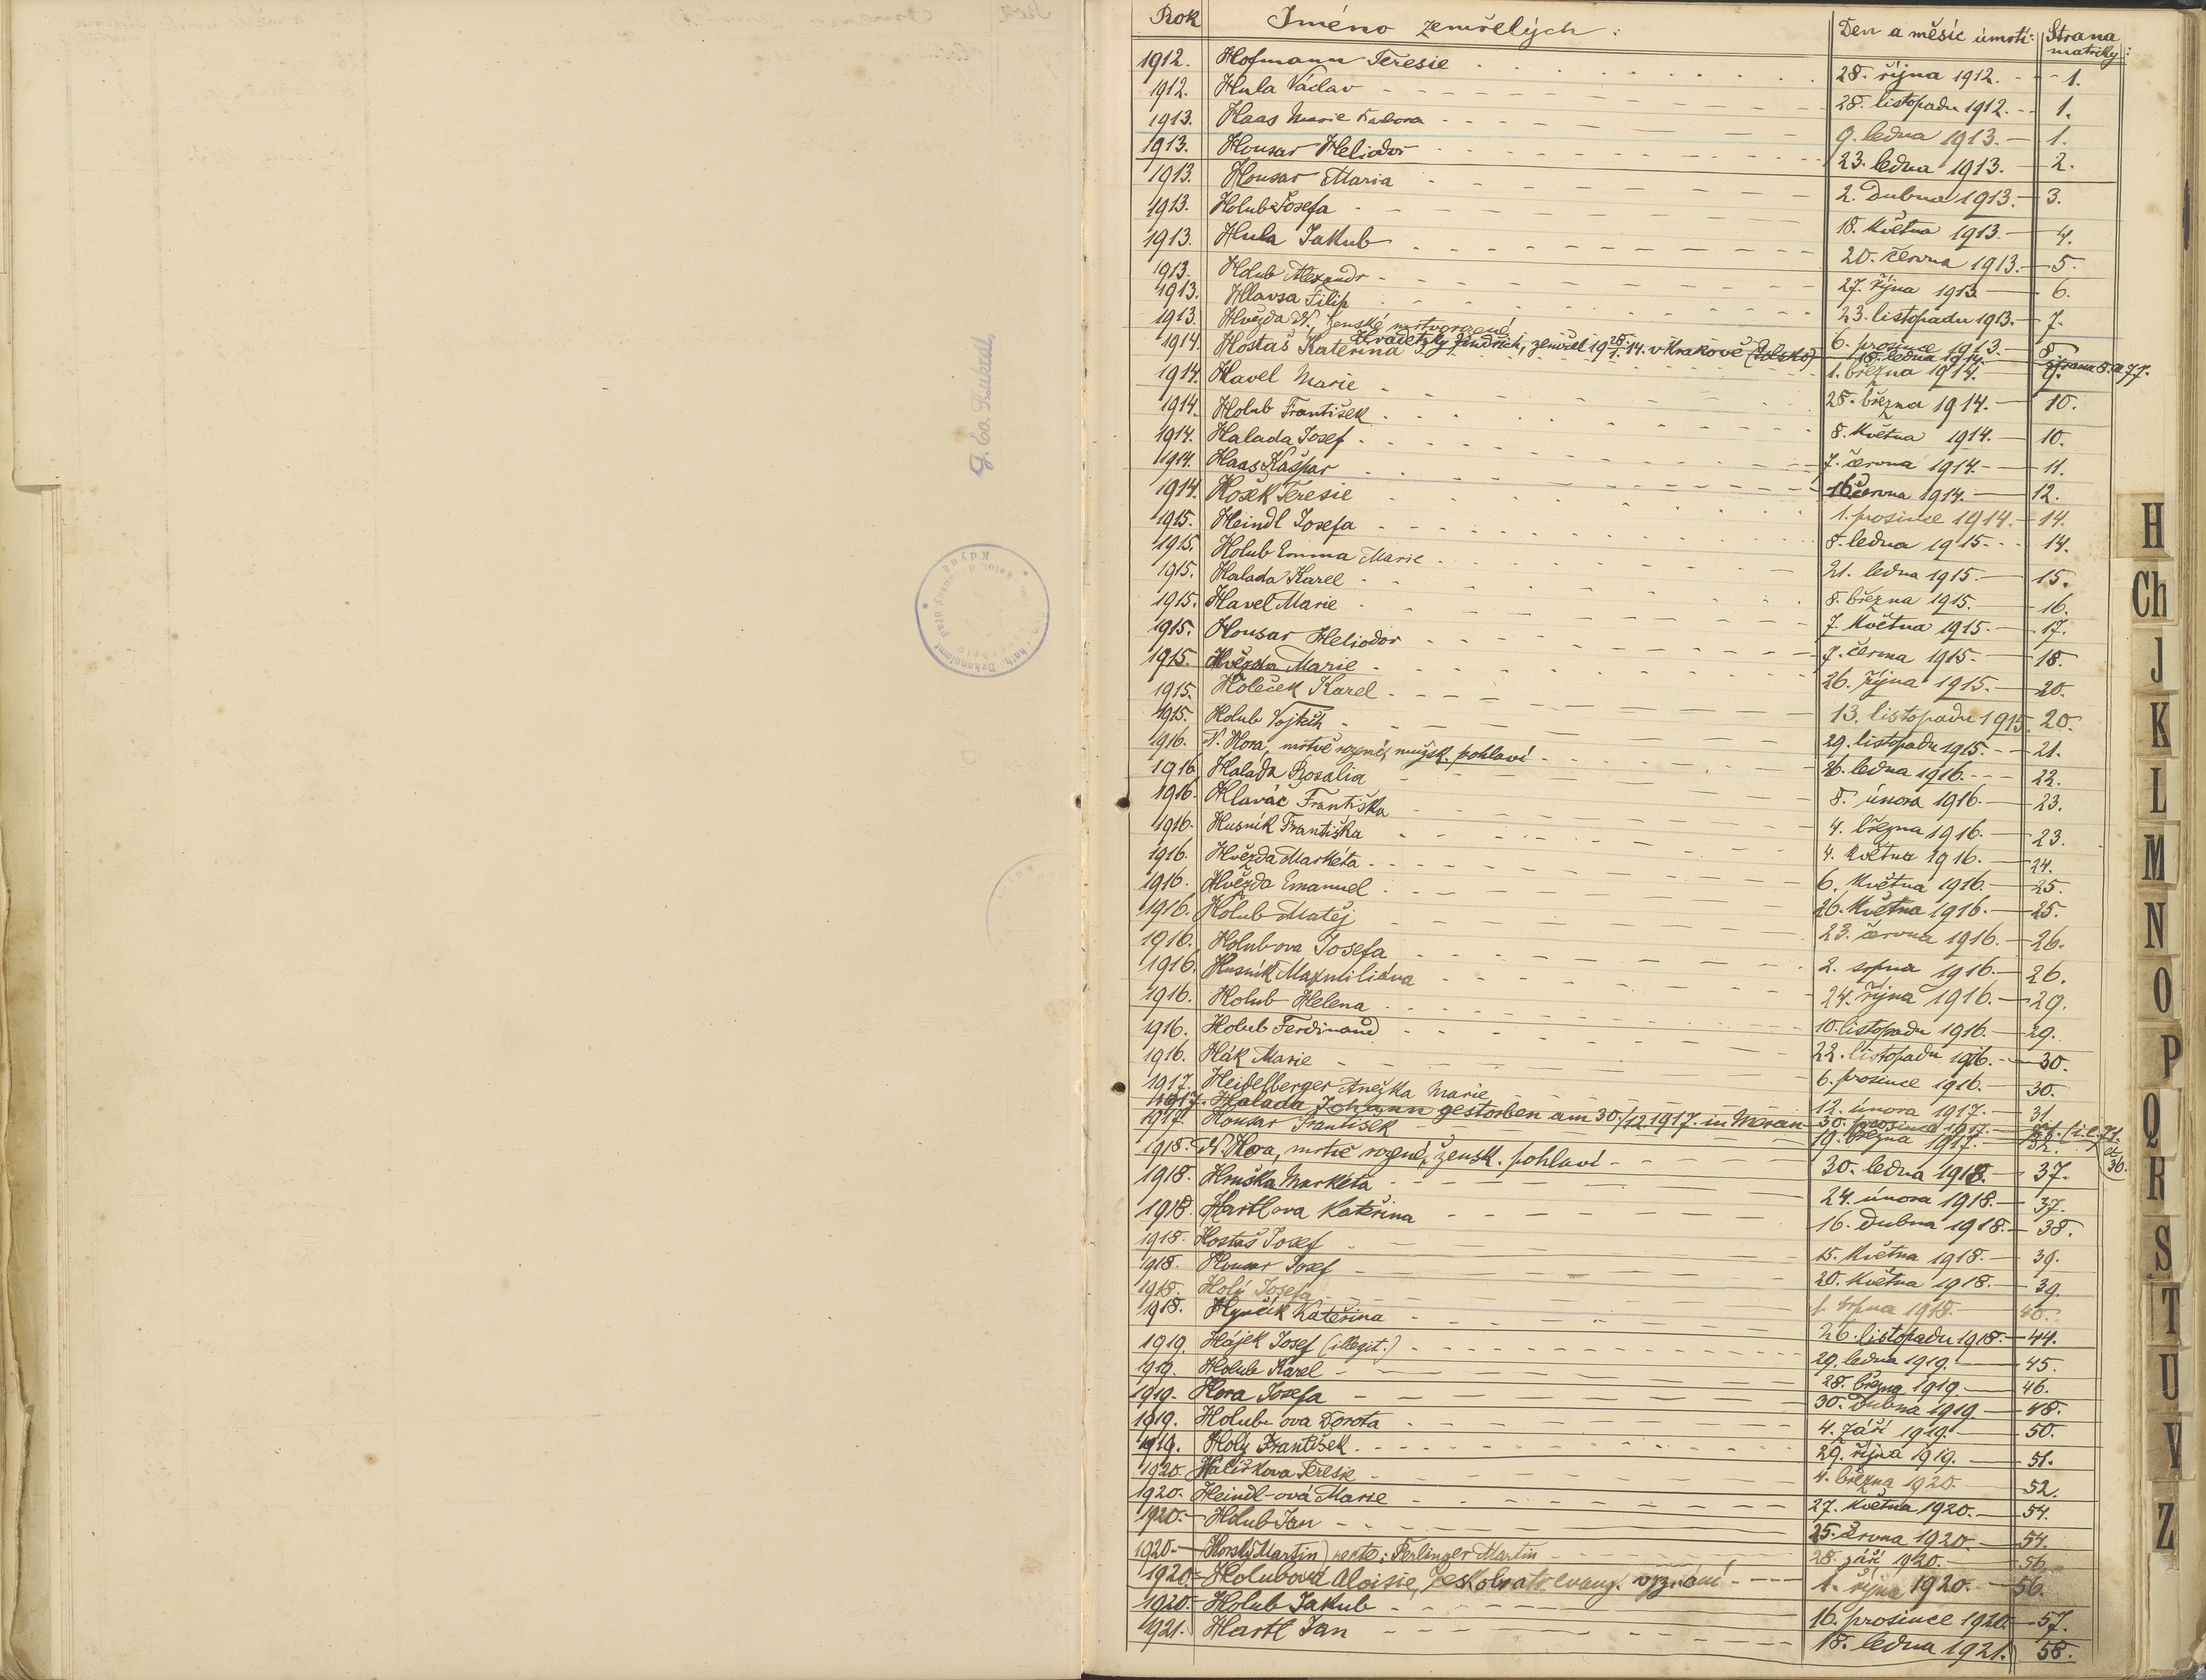 Rok Jméno zemřelých: Den a měsíc úmrtí: Strana matriky:
1912. Hofmann Teresie 28. října 1912. 1.
1912. Hula Václav 28. listopadu 1912. 1.
1913. Haas Marie 9. ledna 1913. 1.
1913. Housar Heliodor 23. ledna 1913. 2.
1913. Housar Maria 2. dubna 1913. 3.
1913. Holub Josefa 18. května 1913. 4.
1913. Hula Jakub 20. června 1913. 5.
1913. Holub Alexandr 27. října 1913 6.
1913. Hlavsa Filip 23. listopadu 1913. 7.
1913. Hvězda N., ženské mrtvorozené 6. prosince 1913. 8.
Hradetzky Jindřich, zemřel 19 28/1. 14. v Krakově (Polsko) 18. ledna 1914. strana 8. a 77.
1914. Hostaš Kateřina 1. března 1914. 9.
1914. Havel Marie 28. března 1914. 10.
1914. Holub František 8. května 1914. 10.
1914. Halada Josef 7. června 1914. 11.
1914. Haas Kašpar 16. června 1914. 12.
1914. Hošek Teresie 1. prosince 1914. 14.
1915. Heindl Josefa 8. ledna 1915. 14.
1915. Holub Emma Marie 21. ledna 1915. 15.
1915. Halada Karel 8. března 1915. 16.
1915. Havel Marie 7. května 1915. 17.
1915. Housar Heliodor 7. června 1915. 18.
1915. Hvězda Marie 26. října 1915. 20.
1915. Holeček Karel 13. listopadu 1915. 20.
1915. Holub Vojtěch 29. listopadu 1915. 21.
1916. N. Hora, mrtvě rozené, mužsk. pohlaví 26. ledna 1916. 22.
1916. Halada Rosalia 8. února 1916. 23.
1916. Hlaváč Františka 4. března 1916. 23.
1916. Husník Františka 4. května 1916. 24.
1916. Hvězda Markéta 6. května 1916. 25.
1916. Hvězda Emanuel 26. května 1916. 25.
1916. Holub Matěj 23. června 1916. 26.
1916. Holubova Josefa 2. srpna 1916. 26.
1916. Husník Maxmiliána 24. října 1916. 29.
1916. Holub Helena 10. listopadu 1916. 29.
1916. Holub Ferdinand 22. listopadu 1916. 30.
1916. Hák Marie 6. prosince 1916. 30.
1917. Heidelberger Anežka Marie 12. února 1917. 31.
1917. Halada Johann gestorben am 30./12. 1917. in Meran 30. prosince 1917. 71. et 36.
1917. Housar František 19. března 1917. 32.
1918. N. Hora, mrtvě rozené, žensk. pohlaví 30. ledna 1918. 37.
1918. Hruška Markéta 24. února 1918. 37.
1918. Hartlova Kateřina 16. dubna 1918. 38.
1918. Hostaš Josef 15. května 1918. 39.
1918. Housar Josef 20. května 1918. 39.
1918. Holý Josefa 1. srpna 1918. 40.
1918. Hynčík Kateřina 26. listopadu 1918. 44.
1919. Hájek Josef (illegit.) 29. ledna 1919. 45.
1919. Holub Karel 28. března 1919. 46.
1919. Hora Josefa 30. dubna 1919. 48.
1919. Holub-ova Dorota 4. září 1919. 50.
1919. Holý František 29. října 1919. 51.
1920. Teresie 4. března 1920. 52.
1920. Heindl-ová Marie 27. května 1920. 54.
1920. Holub Jan 25. června 1920. 54.
1920. (Horský Martin) recte: Perlinger Martin 28. září 1920. 56.
1920. Holubová Aloisie, českobratr. evang. vyznání 1. října 1920. 56.
1920. Holub Jakub 16. prosince 1920. 57.
1921. Hartl Jan 18. ledna 1921. 58.
H
Ch
J
K
L
M
N
O
P
Q
R
S
T
U
V
Z
Kdyně